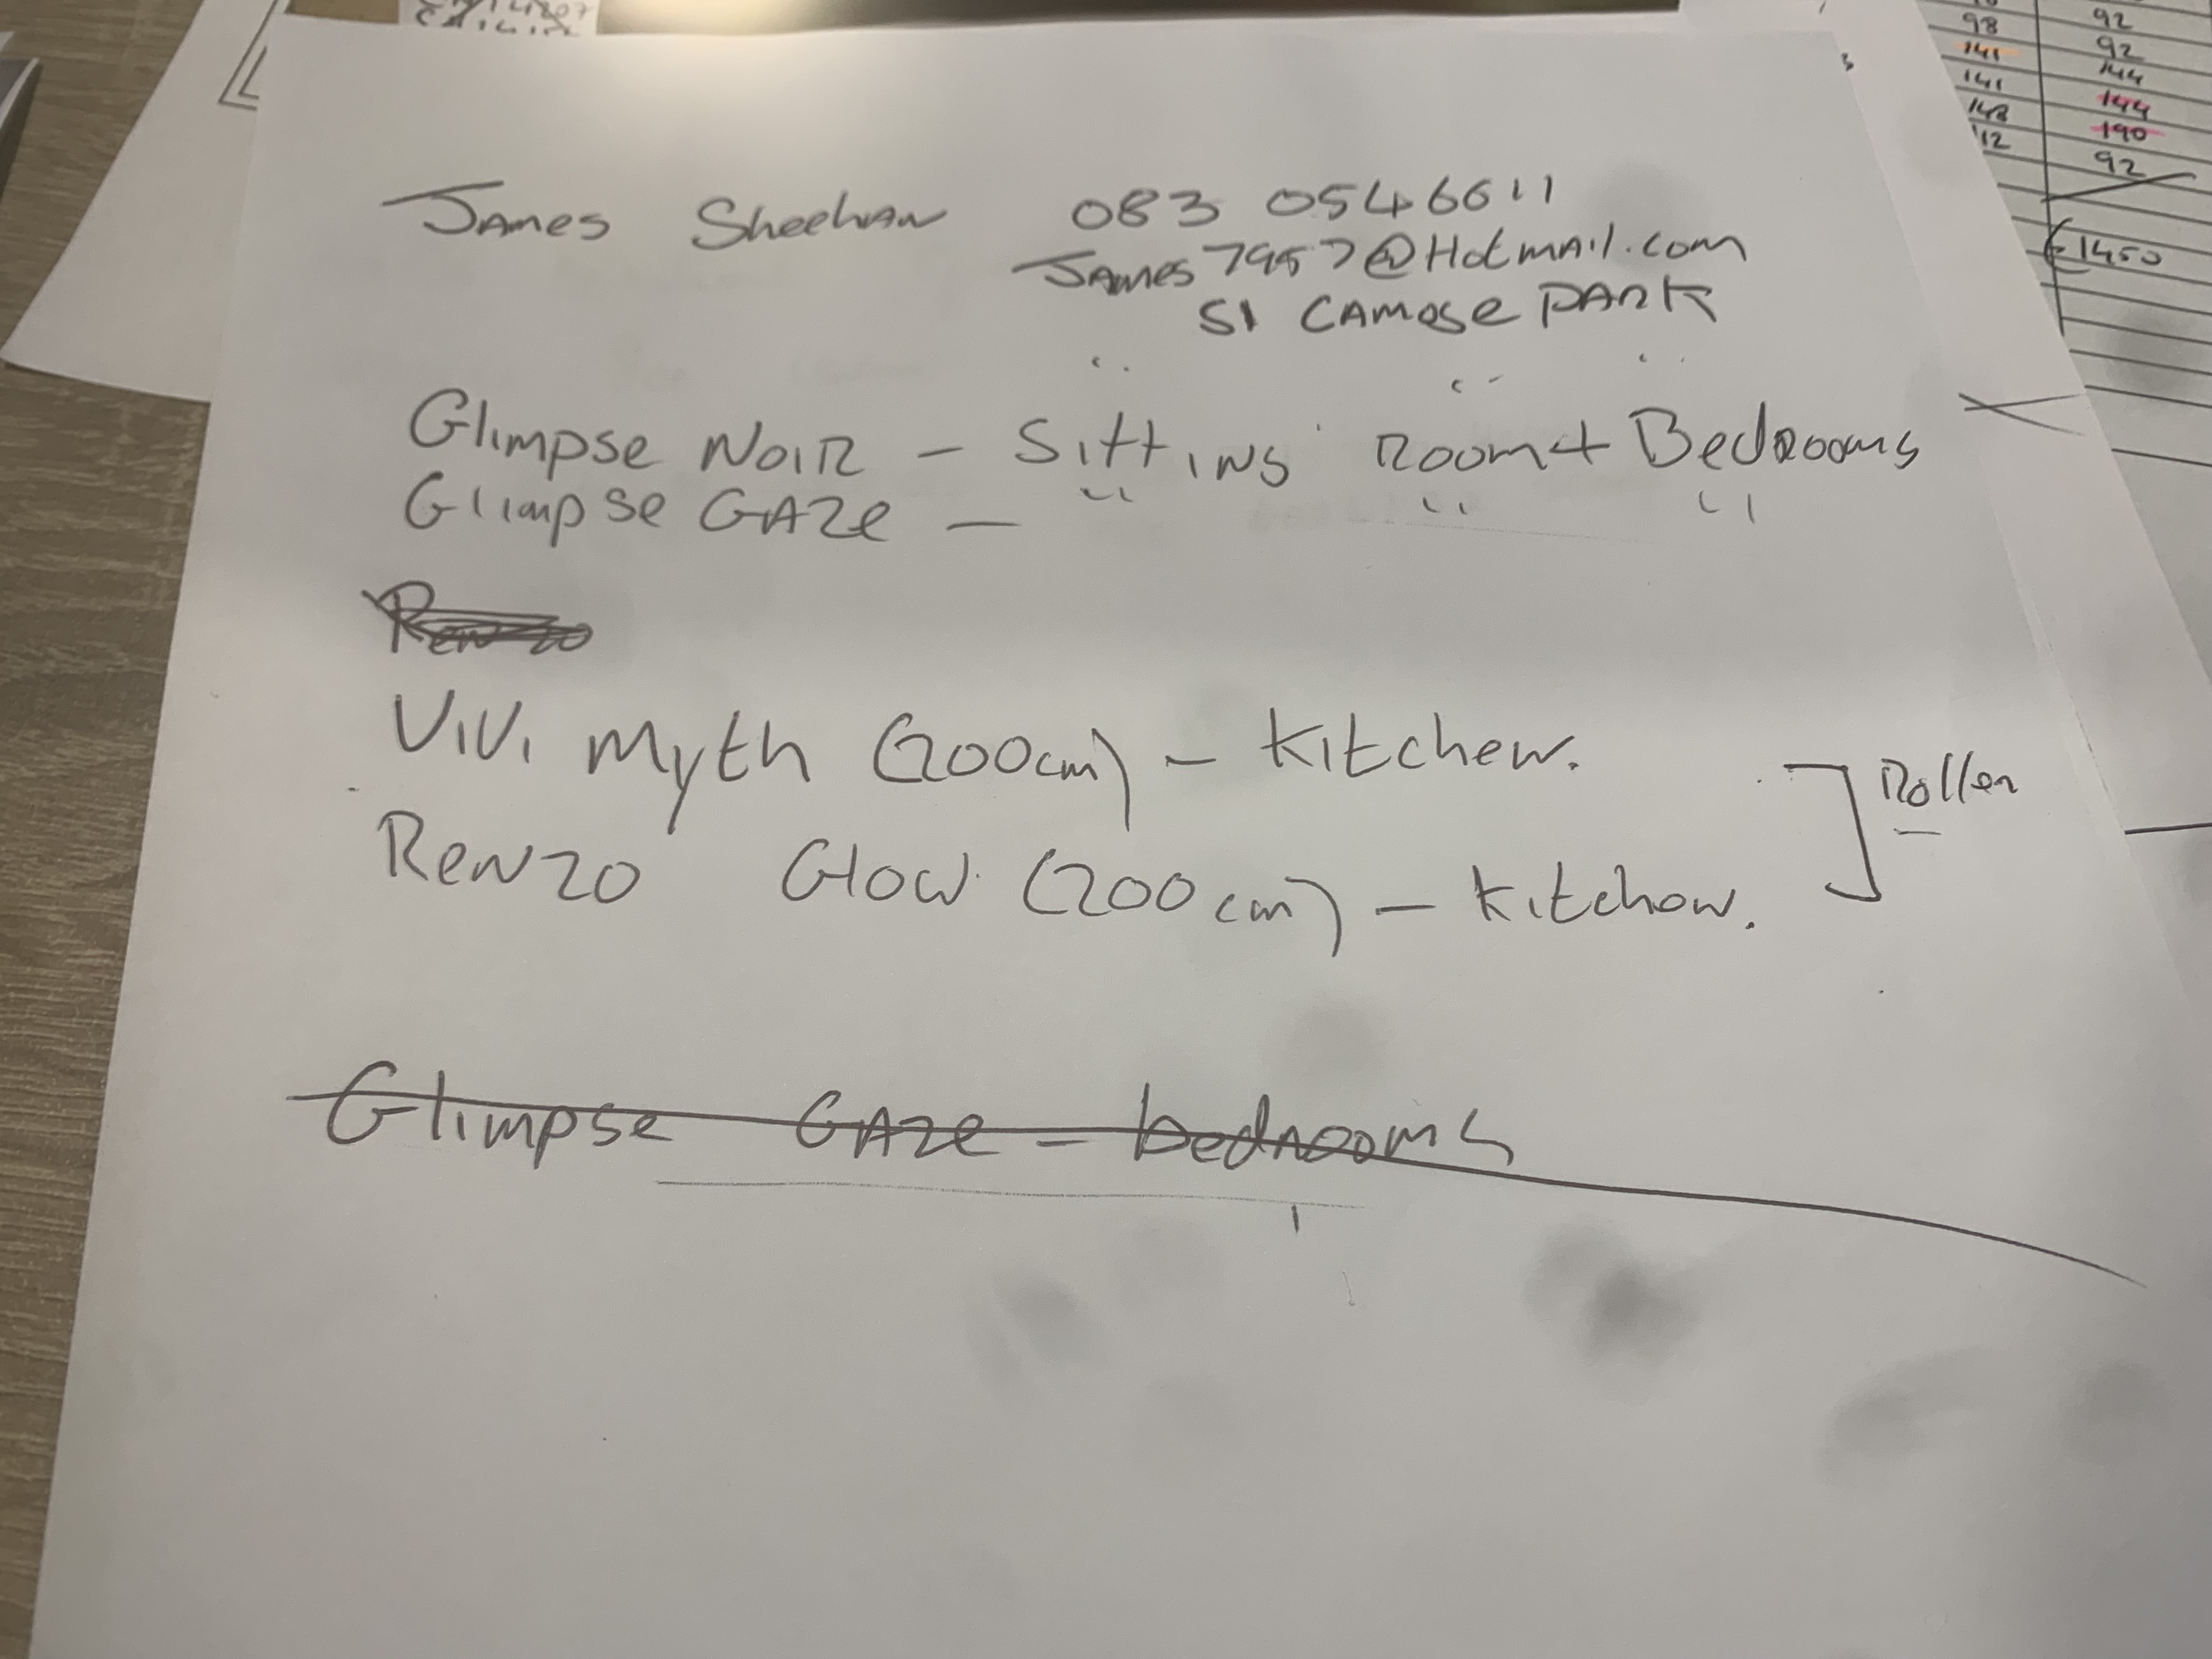 James Sheehan 083 0546611
James7957@Hotmail.com
51 Camose Park
Glimpse Noir - Sitting Room + Bedrooms
Glimpse Gaze - " " "
Renzo
Vivi Myth (200cm) - Kitchen.
Roller
Renzo Glow (200cm) - Kitchen.
Glimpse Gaze - bedrooms
98 92
141 92
141 144
148 144
112 190
92
€1450